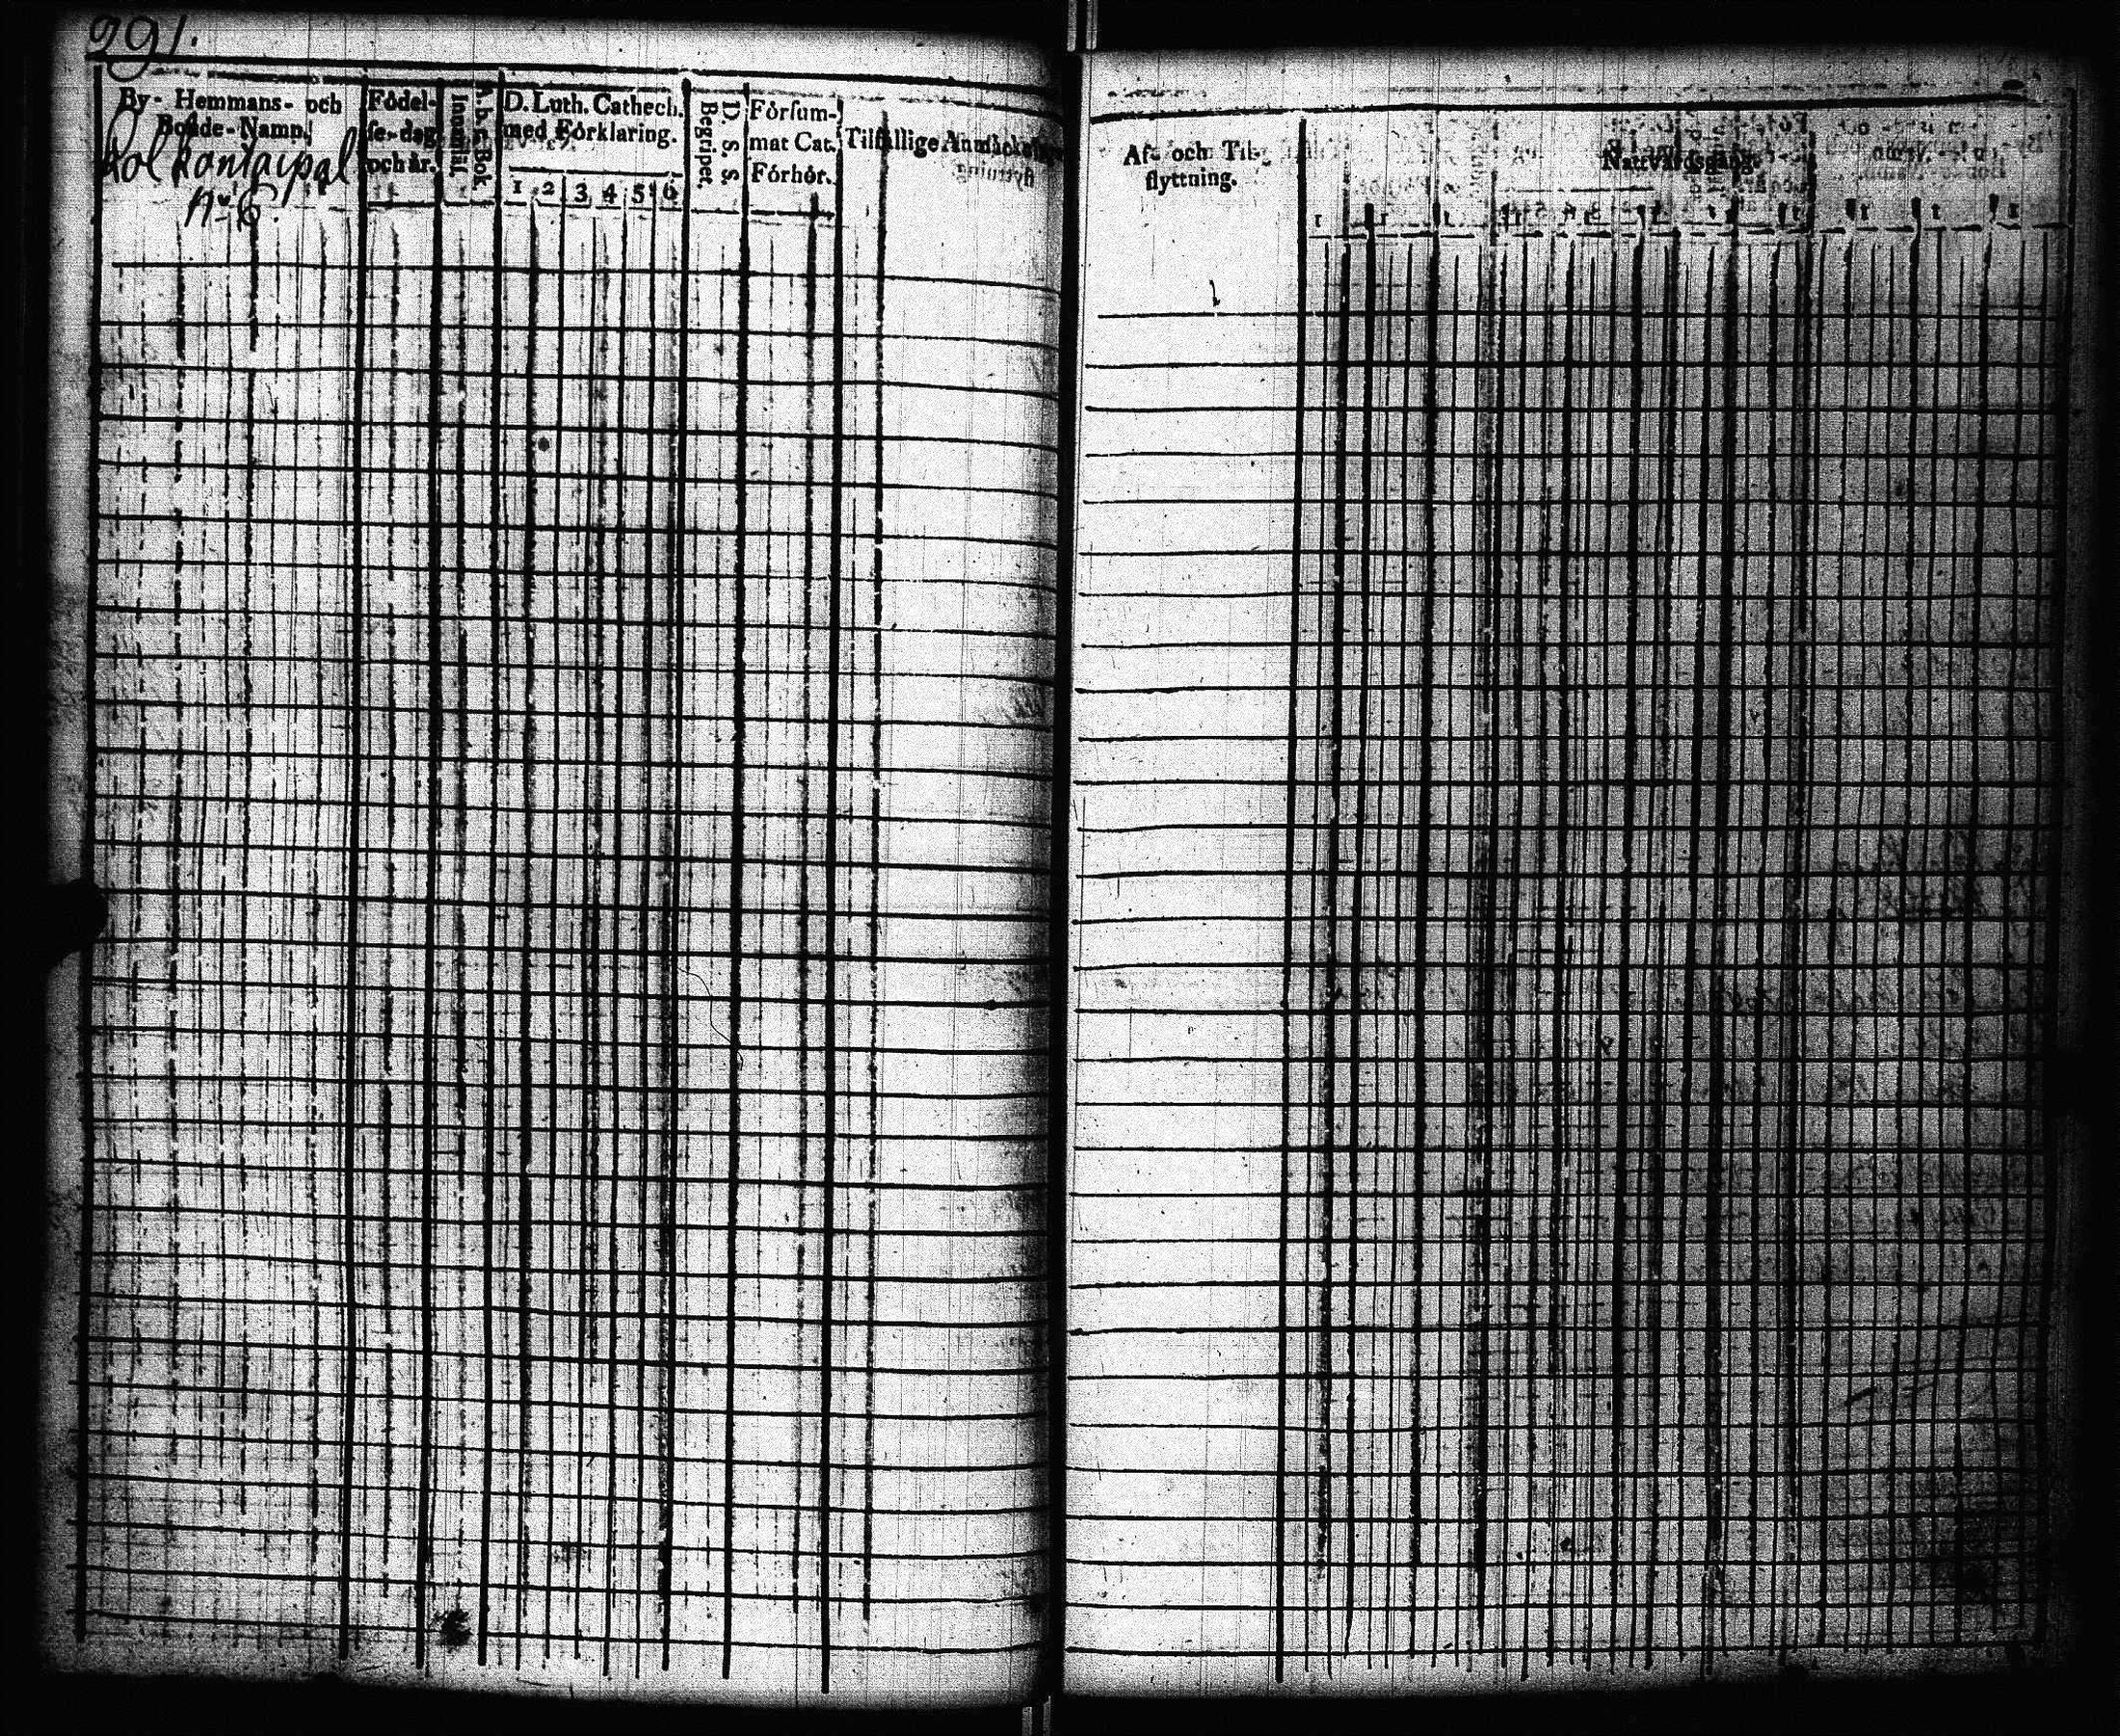 291.
By- Hemmans- och
Bonde-Namn.
Kolkontaipal
N:o 6.
Födel-
se-dag
och år.
A.b.c. Bok
Innantil.
D. Luth. Cathech.
med Förklaring.
1 2 3 4 5 6
D. S. S.
Begripet.
Försum-
mat Cat.
Förhör.
Tilfällige Anmärkningar
Af- och Til-
flyttning.
Nattvardsgång.
1 1 1 1 1 1 1 1 1